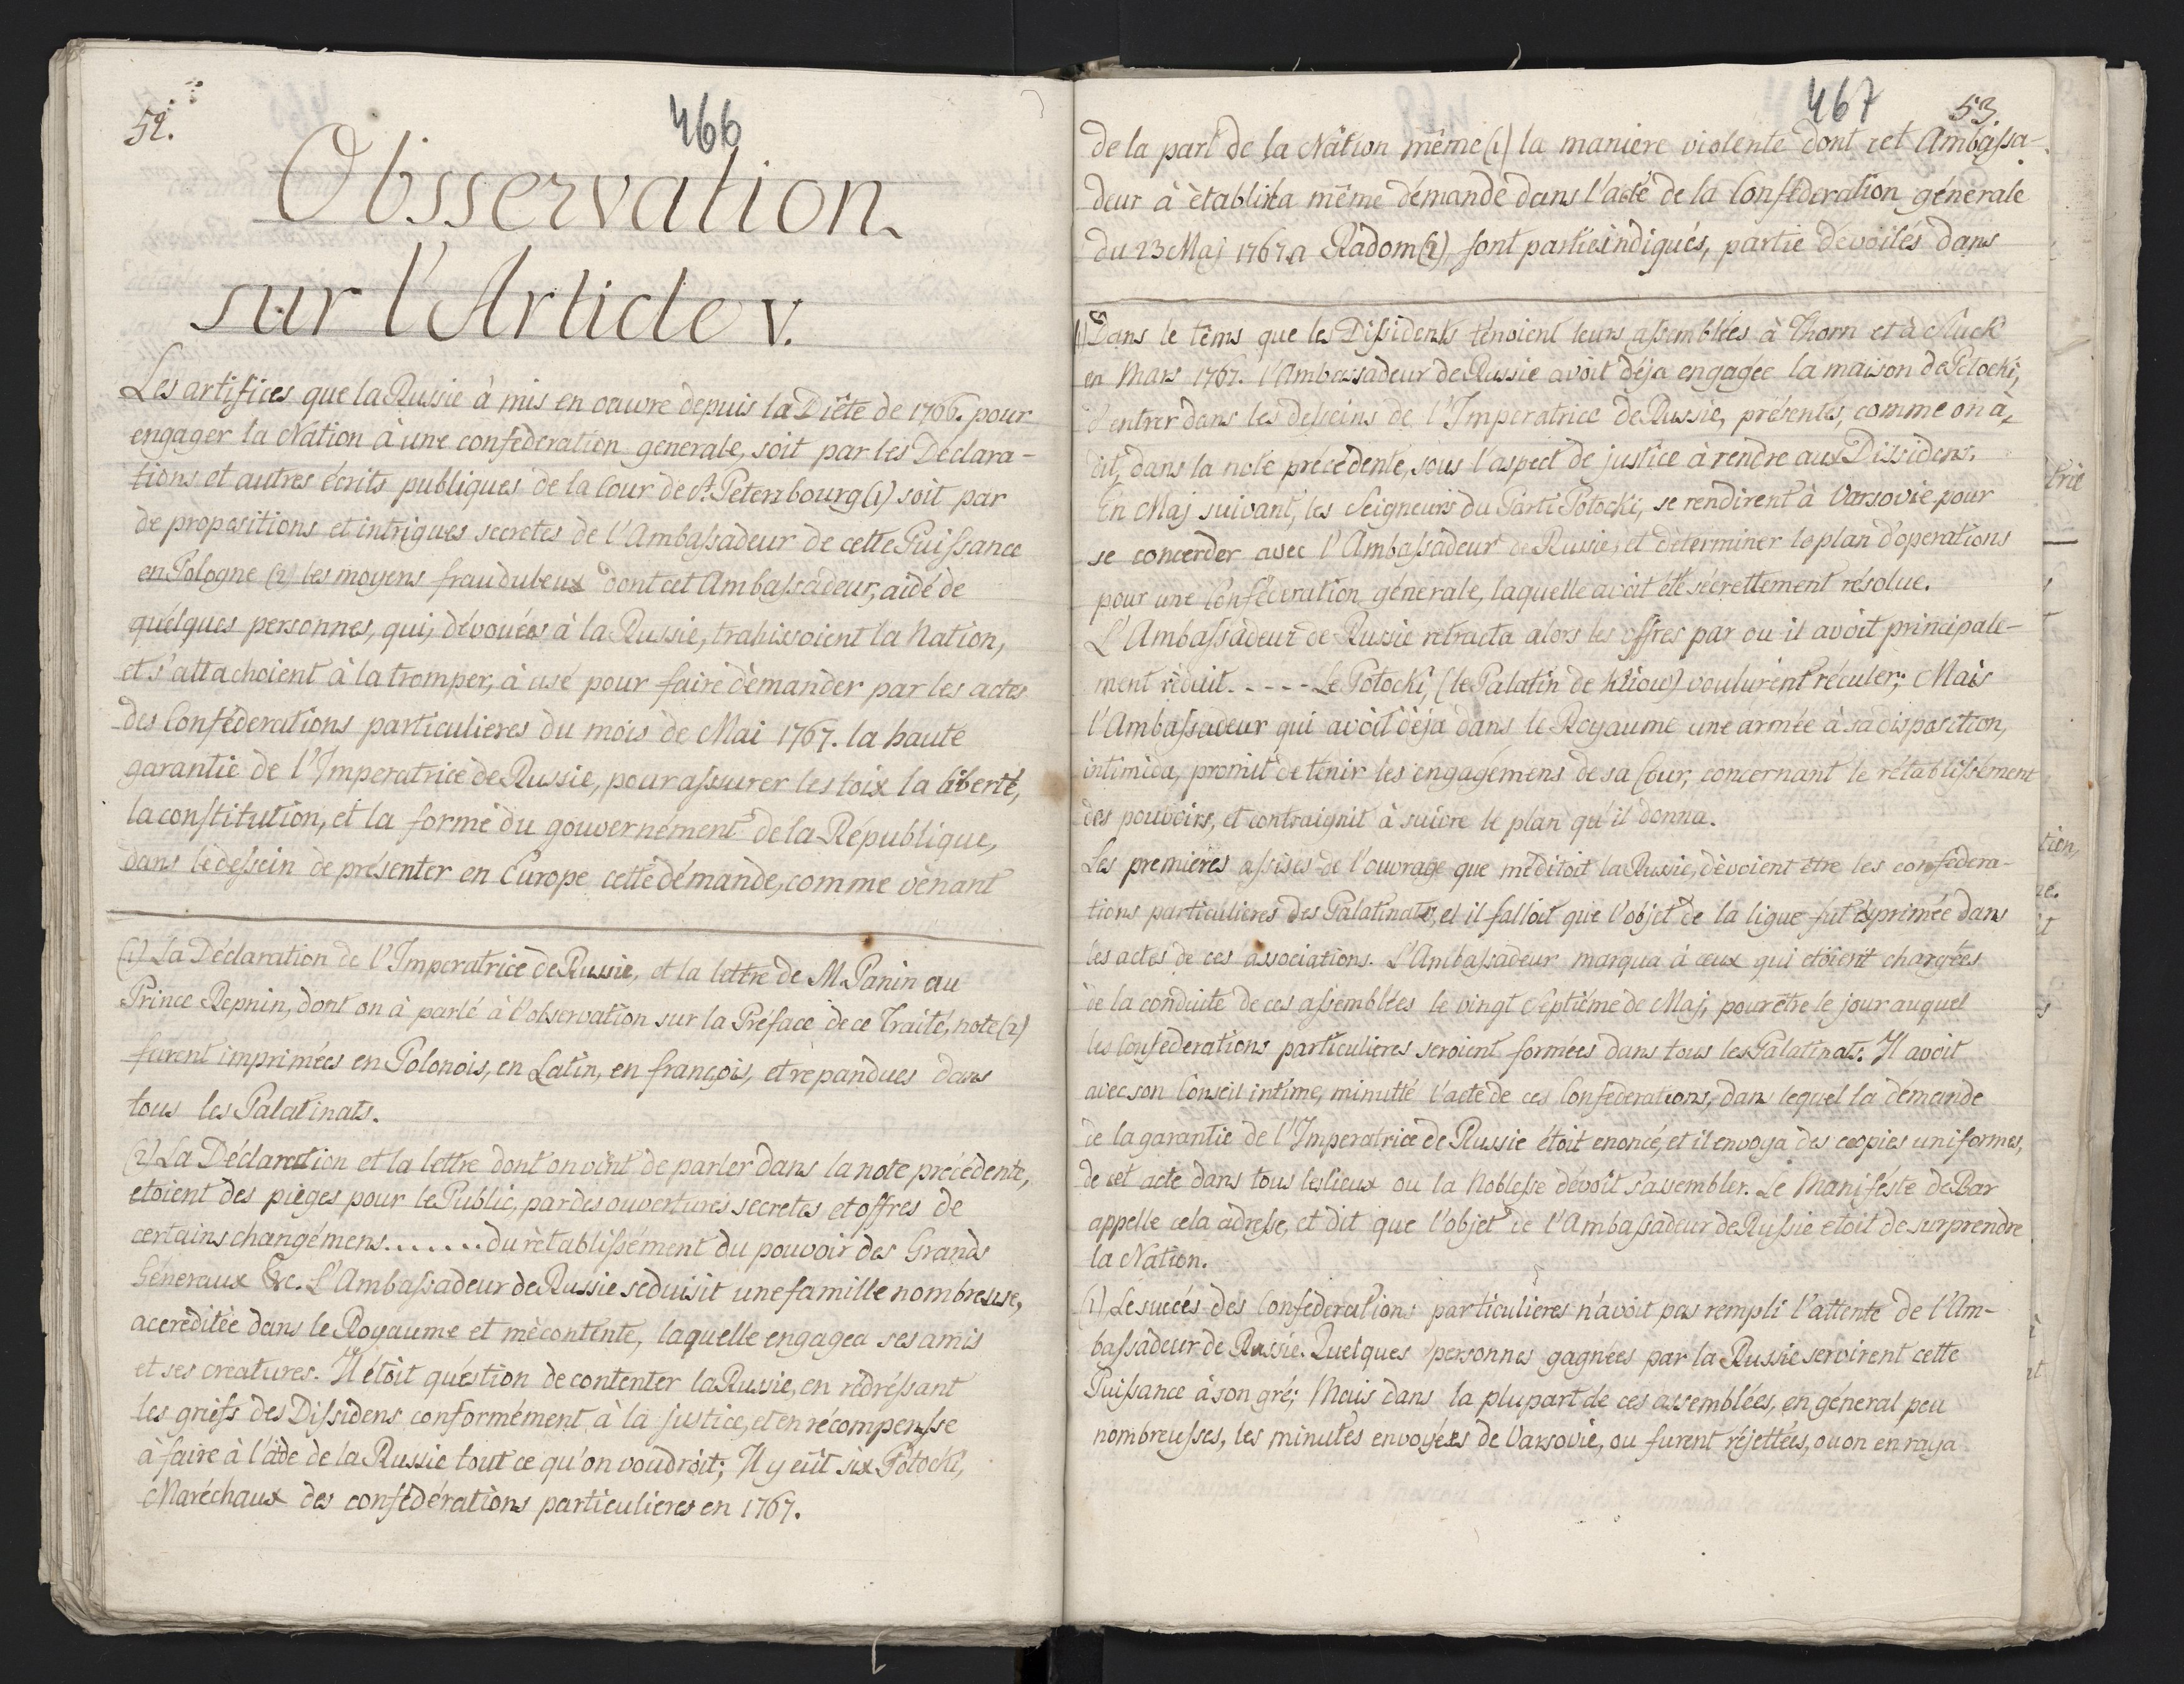 52.
466
Obsservation
sur l'Article v.
Les artifices que la Russie à mis en oauvre depuis la Diête de 1766. pour
engager la Nation à une confèderation generale, soit par les Declara-
tions et autres écrits publiques de la Cour de St. Petersbourg (1) soit par
de propositions et intrigues secretes de l'Ambassadeur de cette Puissance
en Pologne (2) les moyens frauduleux dont cet Ambassadeur, aidé de
quélques personnes, qui, dévouées à la Russie, trahissoient la Nation,
et s'attachoient à la tromper, à usé pour faire dèmander par les actes
des Confèderations particulieres du mois de Mai 1767. la haute
garantie de l'Imperatrice de Russie, pour assurer les loix la liberté,
la constitution, et la forme du gouvernément de la République,
dans le dessein de présenter en Europe cette démande, comme vénant
(1) La Déclaration de l'Imperatrice de Russie, et la lettre de M. Panin au
Prince Repnin, dont on à parlé à l'observation sur la Préface de ce Traité, note (2)
furent imprimées en Polonois, en Latin, en françois, et repandues dans
tous les Palatinats.
(2) La Déclaration et la lettre dont on vint de parler dans la note précédente,
etoient des pièges pour le Public, par des ouvertures secretes et offres de
certains changémens....... du rètablissément du pouvoir des Grands
Géneraux &c. L'Ambassadeur de Russie seduisit une famille nombresuse,
accréditée dans le Royaume et mècontente, laquelle engagea ses amis
et ses creatures. Il étoit quéstion de contenter la Russie, en rédréssant
les griefs des Dissidens conformément à la justice, et en récompensse
à faire à l'aide de la Russie tout ce qu'on voudroit; Il y eût six Potocki,
Maréchaux des confédérations particulieres en 1767.
467
53.
de la part de la Nâtion même (1) la maniere violente dont cet Ambassa-
deur à établi la même démande dans l'acte de la Conféderation génerale
du 23 Maj 1767. a Radom (2), sont partie indiqués, partie dévoilés dans
(1) Dans le têms que les Dissidents ténoient leurs assemblées à Thorn et à Sluck
en Mars 1767. l'Ambassadeur de Russie avoit déja engagée la maison de Potocki,
d'entrer dans les desseins de l'Imperatrice de Russie, présentés, comme on à
dit, dans la note précedente, sous l'aspect de justice à rendre aux Dissidens.
En Maj suivant, les Seigneurs du Parti Potocki, se rendirent à Varsovie pour
se concerder avec l'Ambassadeur de Russie, et déterminer le plan d'operations
pour une Conféderation génerale, laquelle avoit été sécrettement résolue.
L'Ambassadeur de Russie rétracta alors les offres par ou il avoit principale-
ment réduit. - - - - Le Potocki, (le Palatin de Kiiow) voulurent réculer; Mais
l'Ambassadeur qui avoit déja dans le Royaume une armée à sa disposition,
intimida, promit de ténir les engagémens de sa Cour, concernant le rétablissément
des pouvoirs, et contraignit à suivre le plan qu'il donna.
Les premières assises de l'ouvrage que méditoit la Russie, dévoient être les confédera-
tions particulieres des Palatinats, et il falloit que l'objet de la ligue fut exprimée dans
les actes de ces associations. L'Ambassadeur marqua à ceux qui etoient chargées
de la conduite de ces assemblées le vingt septiéme de Maj, pour être le jour auquel
les Conféderations particulieres seroient formées dans tous les Palatinats. Il avoit
avec son Conseil intime, minutté l'acte de ces Conféderations, dans lequel la demande
de la garantie de l'Imperatrice de Russie étoit enoncé, et il envoya des coopies uniformes,
de cet acte dans tous les lieux ou la Noblesse dévoit s'assembler. Le Maniféste de Bar
appelle cela adresse, et dit que l'objet de l'Ambassadeur de Russie etoit de surprendre
la Nation.
(1) Le succés des Conféderations particulières n'avoit pas rempli l'attente de l'Am-
bassadeur de Russie. Quelques personnes gagnées par la Russie servirent cette
Puissance à son gré; Mais dans la plupart de ces assemblées, en géneral peu
nombreusses, les minutes envoyées de Varsovie, ou furent réjettées, ou on en raya